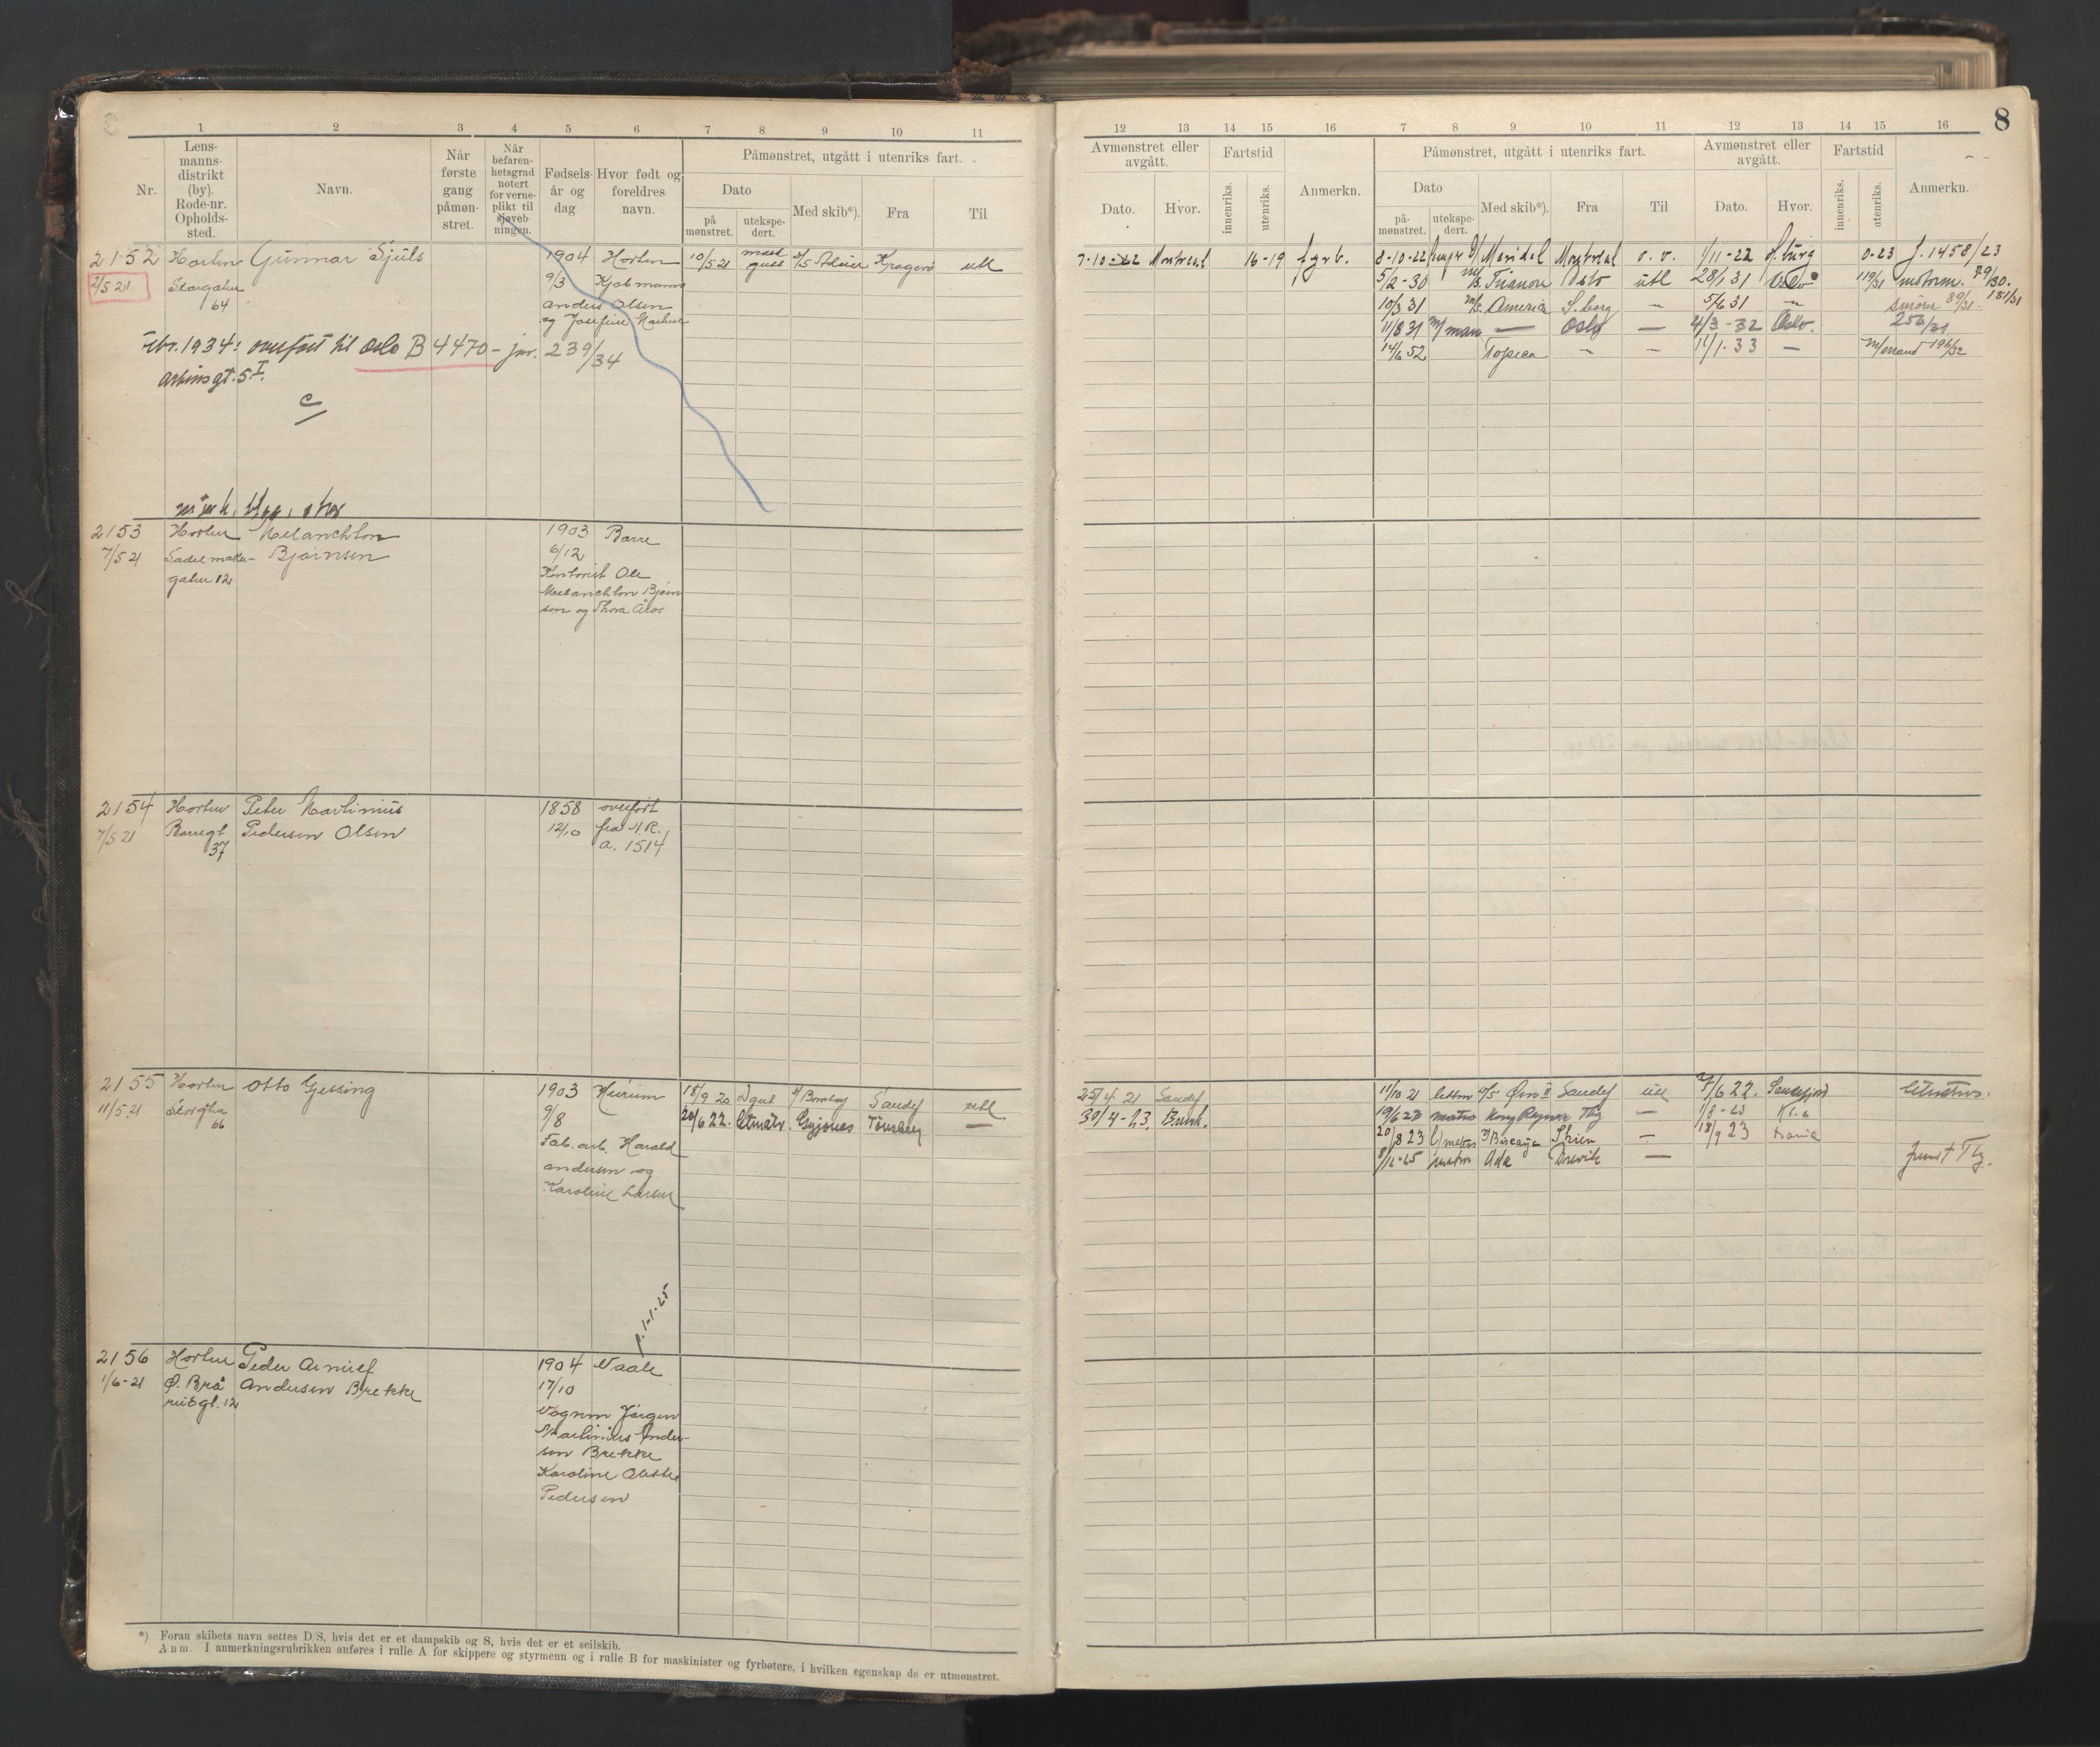 8
1 2 3 4 5 6 7 8 9 10 11
Nr.
Lens-
manns-
distrikt
(by).
Rode-nr.
Opholds-
sted.
Navn.
Når
første
gang
påmøn-
stret.
Når
befaren-
hetsgrad
notert
for verne-
plikt til
sjøveb-
ningen.
Fødsels-
år og
dag
Hvor født og
foreldres
navn.
Påmønstret, utgått i utenriks fart.
Dato
på
mønstret.
utekspe-
dert.
Med skib*).
Fra
Til
12 13 14 15 16 7 8 9 10 11 12 13 14 15 16
Avmønstret eller
avgått.
Dato.
Hvor.
Fartstid
innenriks.
utenriks.
Anmerkn.
Påmønstret, utgått i utenriks fart.
Dato
på-
mønstret.
utekspe-
dert.
Med skib*).
Fra
Til
Avmønstret eller
avgått.
Dato.
Hvor.
Fartstid
innenriks.
utenriks.
Anmerkn.
2152 Horten Gunnar Sjuls 1904 Horten 10/5 21 Kragerø utl
2/5 21 Storgaten 9/3 Kjøbmann
64 Anders Olsen
og Josefine
Febr. 1934: overført til Oslo B 4470 - jnr. 239/34
gt. 5 I.
7-10-22 Montreal 16-19 fyrb. 8-10-22 Montreal v. v. 1/11-22 0-23 J. 1458/23
5/2-30 M/S. Trianon Oslo utl 28/1 31 Oslo 119/31 motorm. 79/30.
10/3 31 M/S. America S. borg — 5/6 31 — smører 89/31. 181/31
11/8 31 — Oslo — 4/3-32 Oslo. 256/31
Topeka — — 11/1-33 — 196/32
2153 Horten Melanchton 1903 Borre
7/5 21 Sadelmaker- Bjørnsen 6/12
gaten 12 Kontorist Ole
Melanchton Bjørn
sen og Thora Aas
2154 Horten Peter Martinius 1858 overført
7/5 21 Borregt. Pedersen Olsen 12/10 fra A.R.
37 a. 1514
2155 Horten Otto Gessing 1903 Hurum 18/9 20 Bombay Sandef utl
11/5-21 Storgaten 9/8 20/6 22. Letmatr. Tønsberg —
66 Fab. arb. Harald
Andersen og
Karoline Larsen
25/4 21 Sandef 11/10 21 Ørn II Sandef utl 5/6 22. Sandefjord letmatros.
30/4-23. 19/6 23 matros Kong Ragnar Tbg — 1/8-23
20/8 23 Biscaya Skien — 18/9 23
matros Ada Brevik — Tbg.
2156 Horten Peder Arnulf 1904 Vaale
1/6-21 Ø. Brå Andersen Brekke 17/10
rudgt. 12 Vognm Jørgen
Martinius Ander-
sen Brekke
Karoline
Pedersen
*) Foran skibets navn settes D/S, hvis det er et dampskib og S, hvis det er et seilskib.
Anm. I anmerkningsrubrikken anføres i rulle A for skippere og styrmenn og i rulle B for maskinister og fyrbøtere, i hvilken egenskap de er utmønstret.